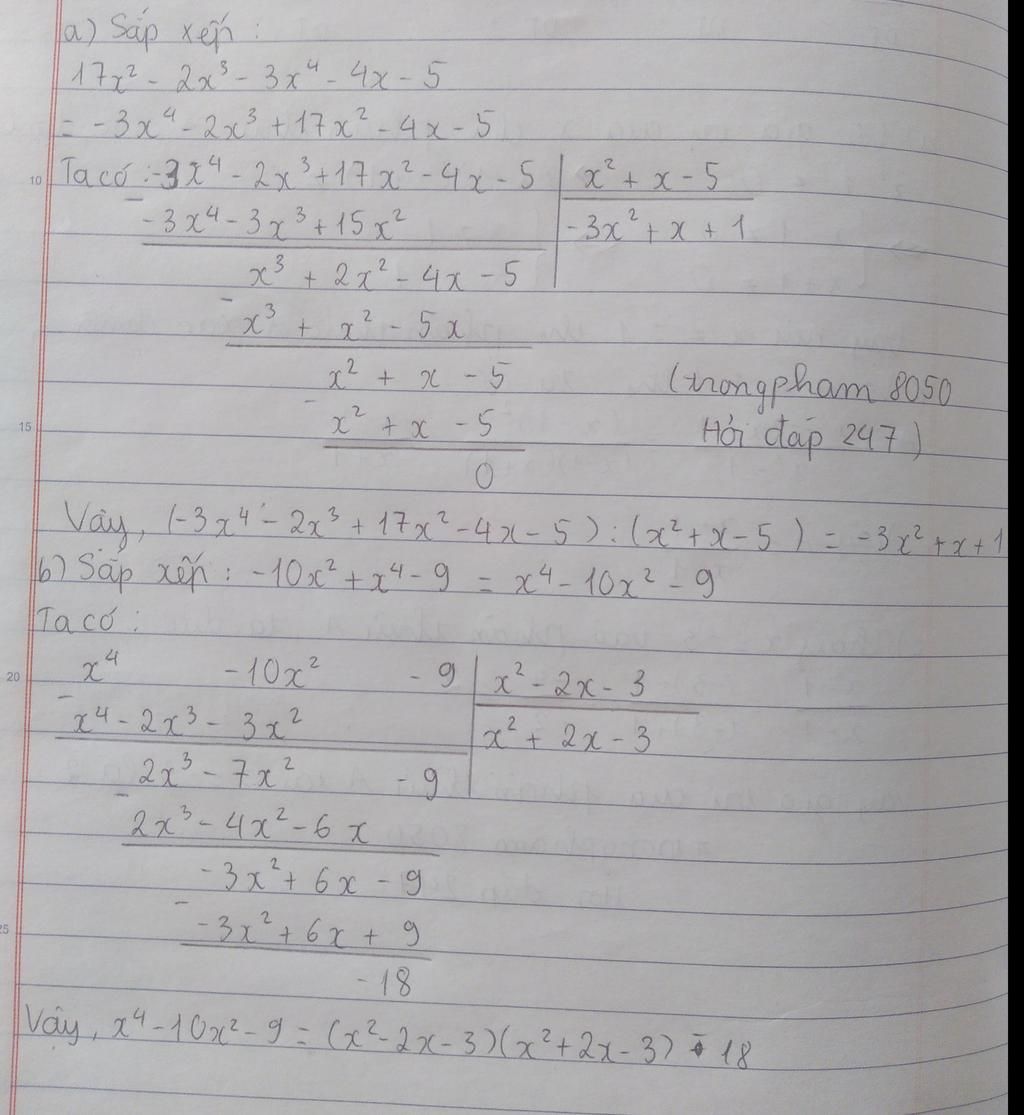 a) Sắp xếp :
17x² - 2x³ - 3x⁴ - 4x - 5
= -3x⁴ - 2x³ + 17x² - 4x - 5
10 Ta có : -3x⁴ - 2x³ + 17x² - 4x - 5 | x² + x - 5
- -3x⁴ - 3x³ + 15x² | -3x² + x + 1
x³ + 2x² - 4x - 5
- x³ + x² - 5x
x² + x - 5 (trongpham 8050
15 - x² + x - 5 Hỏi đáp 247)
0
Vậy, (-3x⁴ - 2x³ + 17x² - 4x - 5) : (x² + x - 5) = -3x² + x + 1
b) Sắp xếp : -10x² + x⁴ - 9 = x⁴ - 10x² - 9
Ta có :
20 x⁴ -10x² - 9 | x² - 2x - 3
- x⁴ - 2x³ - 3x² | x² + 2x - 3
2x³ - 7x² - 9
- 2x³ - 4x² - 6x
-3x² + 6x - 9
25 - -3x² + 6x + 9
-18
Vậy, x⁴ - 10x² - 9 = (x² - 2x - 3)(x² + 2x - 3) - 18